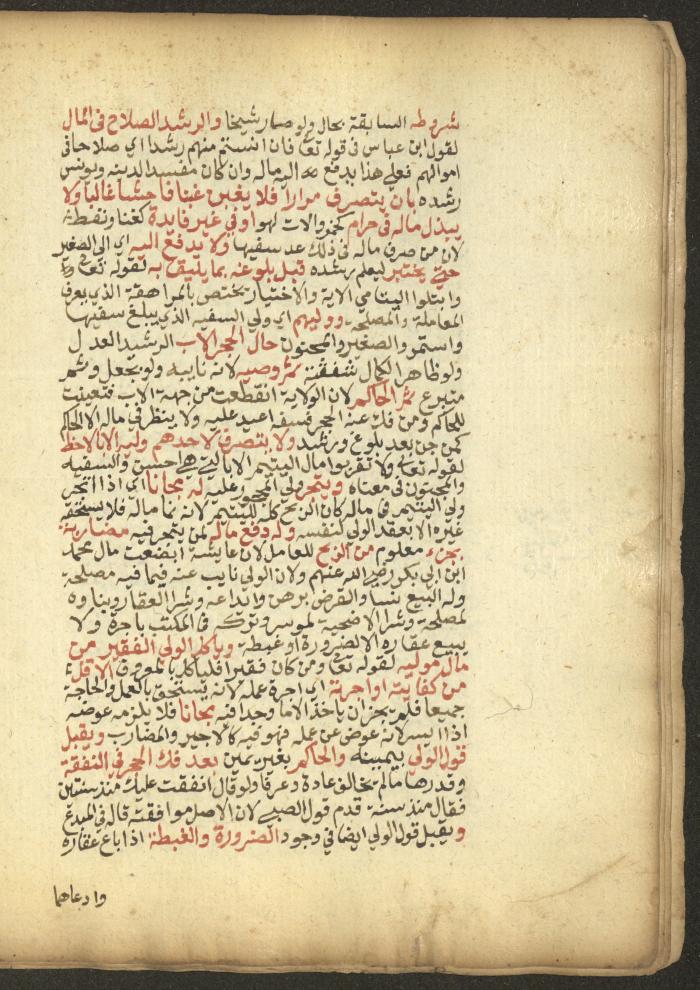 شروطه السابقة بحال ولو صار شيخا والرشد الصلاح في المال
لقول ابن عباس في قوله تعا فان انستم منهم رشدا اي صلاحا في
اموالهم فعلى هذا يدفع اليه ماله وان كان مفسد الدينه ويونس
رشده بان يتصرف مرارا فلا يغبن غبنا فاحشا غالبا ولا
يبذل ماله في حرام كخمر والات لهو او في غير فايدة كغنا ونفط
لان من صرف ماله في ذلك عد سفيها ولا يدفع اليه اي الى الصغير
حتى يختبر ليعلم رشده قبل بلوغه بما يليق به لقوله تعا
وابتلوا اليتامى الاية والاختبار يختص بالمراهقة الذي يعرف
المعاملة والمصلحة ووليهم اي ولي السفيه الذي يبلغ سفيها
واستمر والصغير والمجنون حال الحجر الاب الرشيد العدل
ولو ظاهرا لكمال شفقته ثم وصيه لانه نايبه ولو بجعل وثم
متبرع ثم الحاكم لان الولاية انقطعت من جهة الاب فتعينت
للحاكم ومن فك عنه الحجر فسفه اعيد عليه ولا ينظر في ماله الا الحاكم
كمن جن بعد بلوغ ورشد ولا يتصرف لاحدهم وليه الا بالاحظ
لقوله تعا ولا تقربوا مال اليتيم الا بالتي هي احسن والسفيه
والمجنون في معناه ويتجر ولي المحجور عليه له مجانا اي اذا اتجر
ولي اليتيم في ماله كان الربح كله لليتيم لانه نما ماله فلا يستحقه
غيره الا بعقد الولي لنفسه وله دفع ماله لمن يتجر فيه مضاربة
بجزء معلوم من الربح للعامل لان عايشة ابضعت مال محمد
ابن ابي بكر رضي الله عنهم ولان الولي نايب عنه فيما فيه مصلحة
وله البيع نسا والقرض برهن وايداعه وشرا العقار وبناوه
لمصلحة وشرا الاضحية لموسر وتركه في المكتب باجرة ولا
يبيع عقاره الا لضرورة او غبطة وياكل الولي الفقير من
مال موليه لقوله تعا ومن كان فقيرا فلياكل بالمعروف الاقل
من كفايته او اجرته اي اجرة عمله لانه يستحق بالعمل والحاجة
جميعا فلم يجز ان ياخذ الا ما وجدا فيه مجانا فلا يلزمه عوضه
اذا ايسر لانه عوض عن عمله فهو فيه كالاجير والمضارب ويقبل
قول الولي بيمينه والحاكم بغير يمين بعد فك الحجر في النفقة
وقدرها ما لم يخالف عادة وعرفا ولو قال انفقت عليك منذ سنتين
فقال منذ سنة قدم قول الصبي لان الاصل موافقته قاله في المبدع
ويقبل قول الولي ايضا في وجود الضرورة والغبطة اذا باع عقاره
وادعاهما